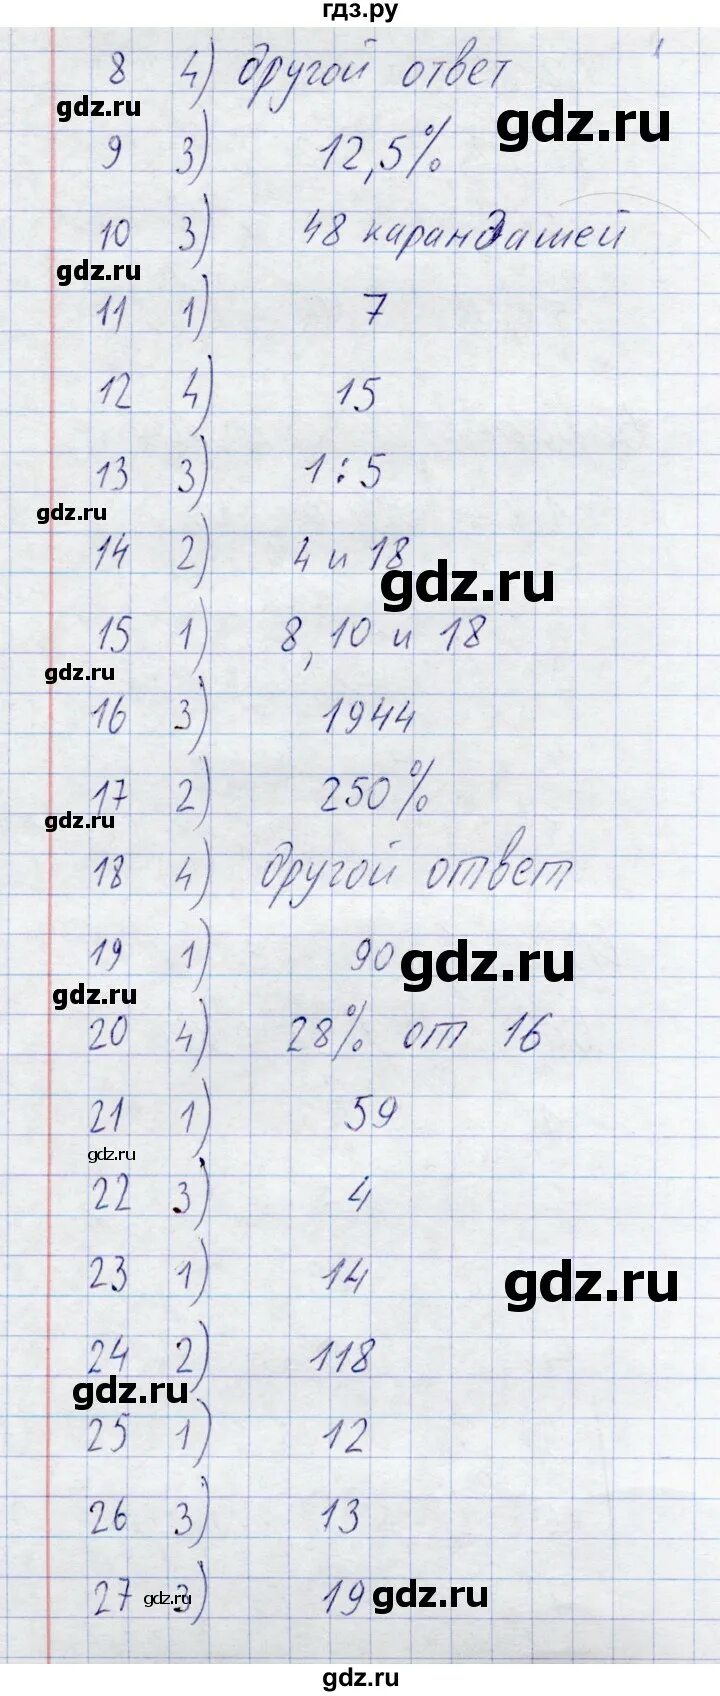 гдз.ру
8 4) другой ответ
gdz.ru
gdz.ru
9 3) 12,5%
10 3) 48 карандашей
gdz.ru
11 1) 7
12 4) 15
13 3) 1:5
gdz.ru
14 2) 4 и 18
gdz.ru
15 1) 8, 10 и 18
gdz.ru
16 3) 1944
17 2) 250%
gdz.ru
18 4) другой ответ
19 1) 90
gdz.ru
gdz.ru
20 4) 28% от 16
21 1) 59
gdz.ru
22 3) 4
23 1) 14
gdz.ru
24 2) 118
gdz.ru
25 1) 12
26 3) 13
27 3) 19
gdz.ru
gdz.ru
gdz.ru